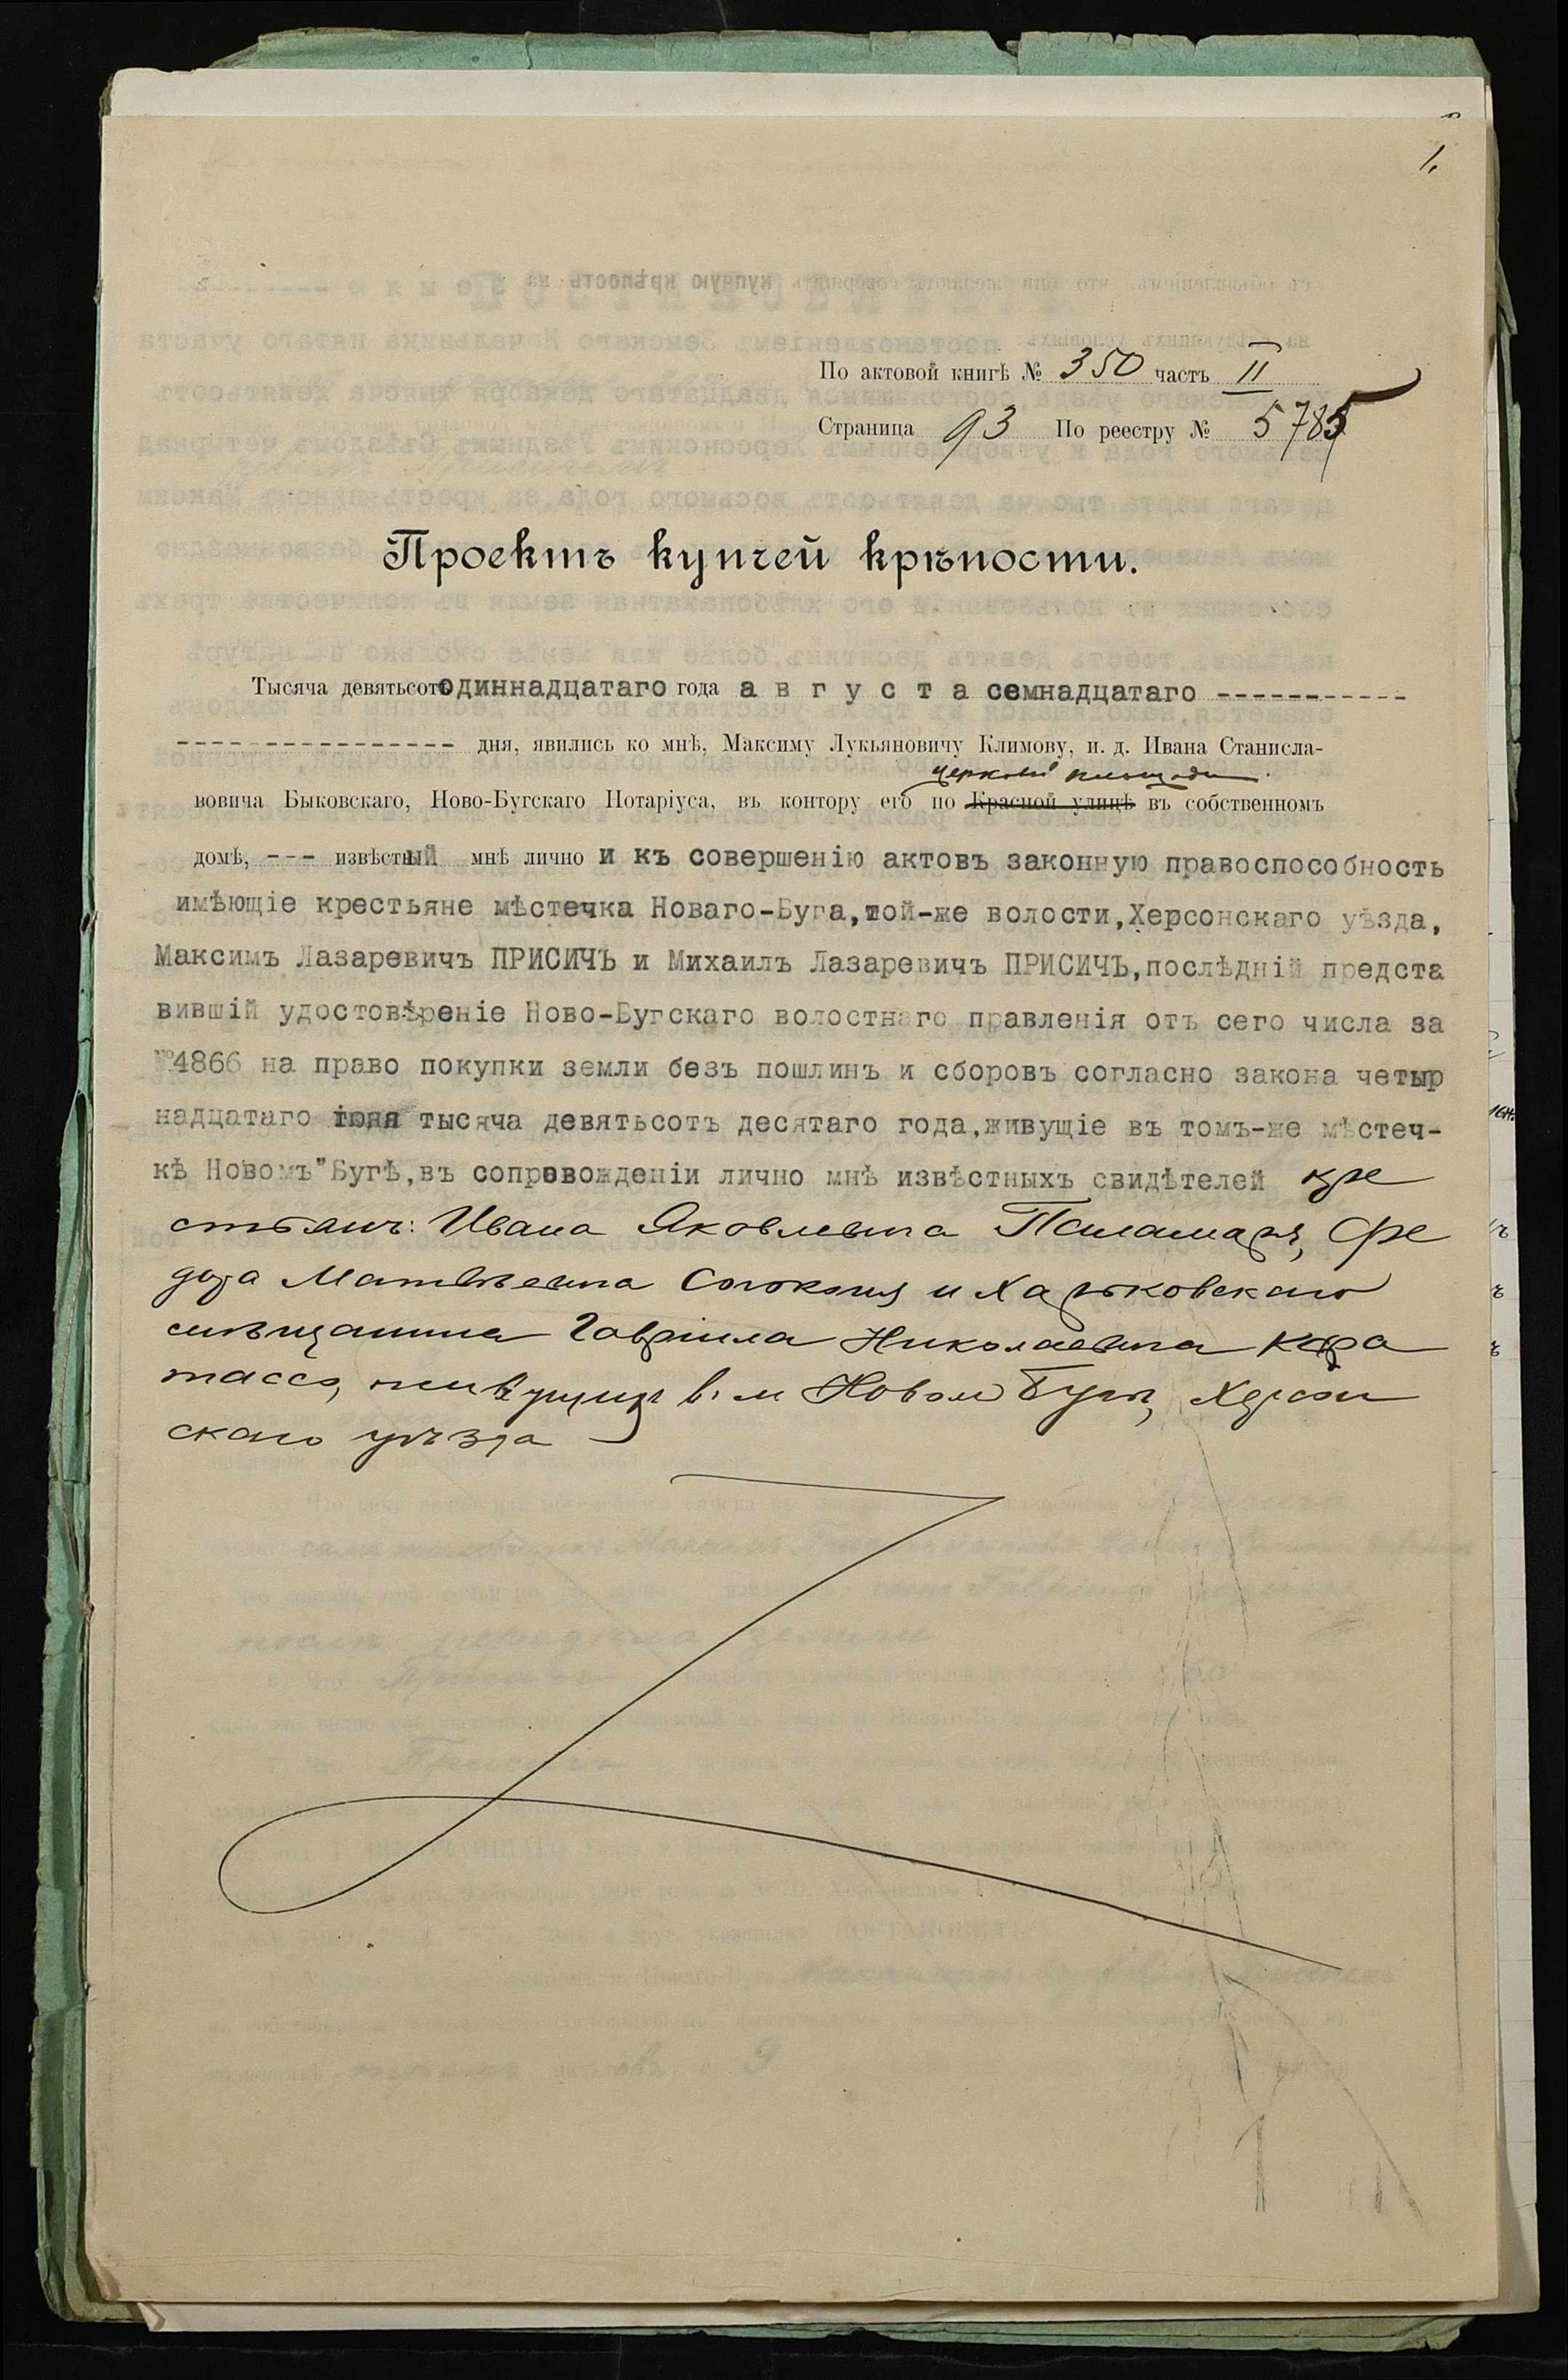 1.
По актовой книгѣ № 350 часть II
Страница 93 По реестру № 5785
Проектъ купчей крѣпости.
Тысяча девятьсотъ одиннадцатаго года а в г у с т а семнадцатаго -----------
---------------- дня, явились ко мнѣ, Максиму Лукьяновичу Климову, и. д. Ивана Станисла-
церковной площади
вовича Быковскаго, Ново-Бугскаго Нотаріуса, въ контору его по Красной улицѣ въ собственномъ
домѣ, --- извѣстный мнѣ лично и къ совершенію актовъ законную правоспособность
имѣющіе крестьяне мѣстечка Новаго-Буга,той-же волости,Херсонскаго уѣзда,
Максимъ Лазаревичъ ПРИСИЧЪ и Михаилъ Лазаревичъ ПРИСИЧЪ,послѣдній предста
вившій удостовѣреніе Ново-Бугскаго волостнаго правленія отъ сего числа за
№4866 на право покупки земли безъ пошлинъ и сборовъ согласно закона четыр
надцатаго іюня тысяча девятьсотъ десятаго года,живущіе въ томъ-же мѣстеч-
кѣ Новомъ"Бугѣ,въ сопровожденіи лично мнѣ извѣстныхъ свидѣтелей кре
стьянъ: Ивана Яковлевича Паламаря, Фе
дора Матвѣевича и Харьковскаго
мѣщанина Гавріила Николаевича Кара
тассо, живущихъ в. м Новом Бугѣ, Херсон
скаго уѣзда